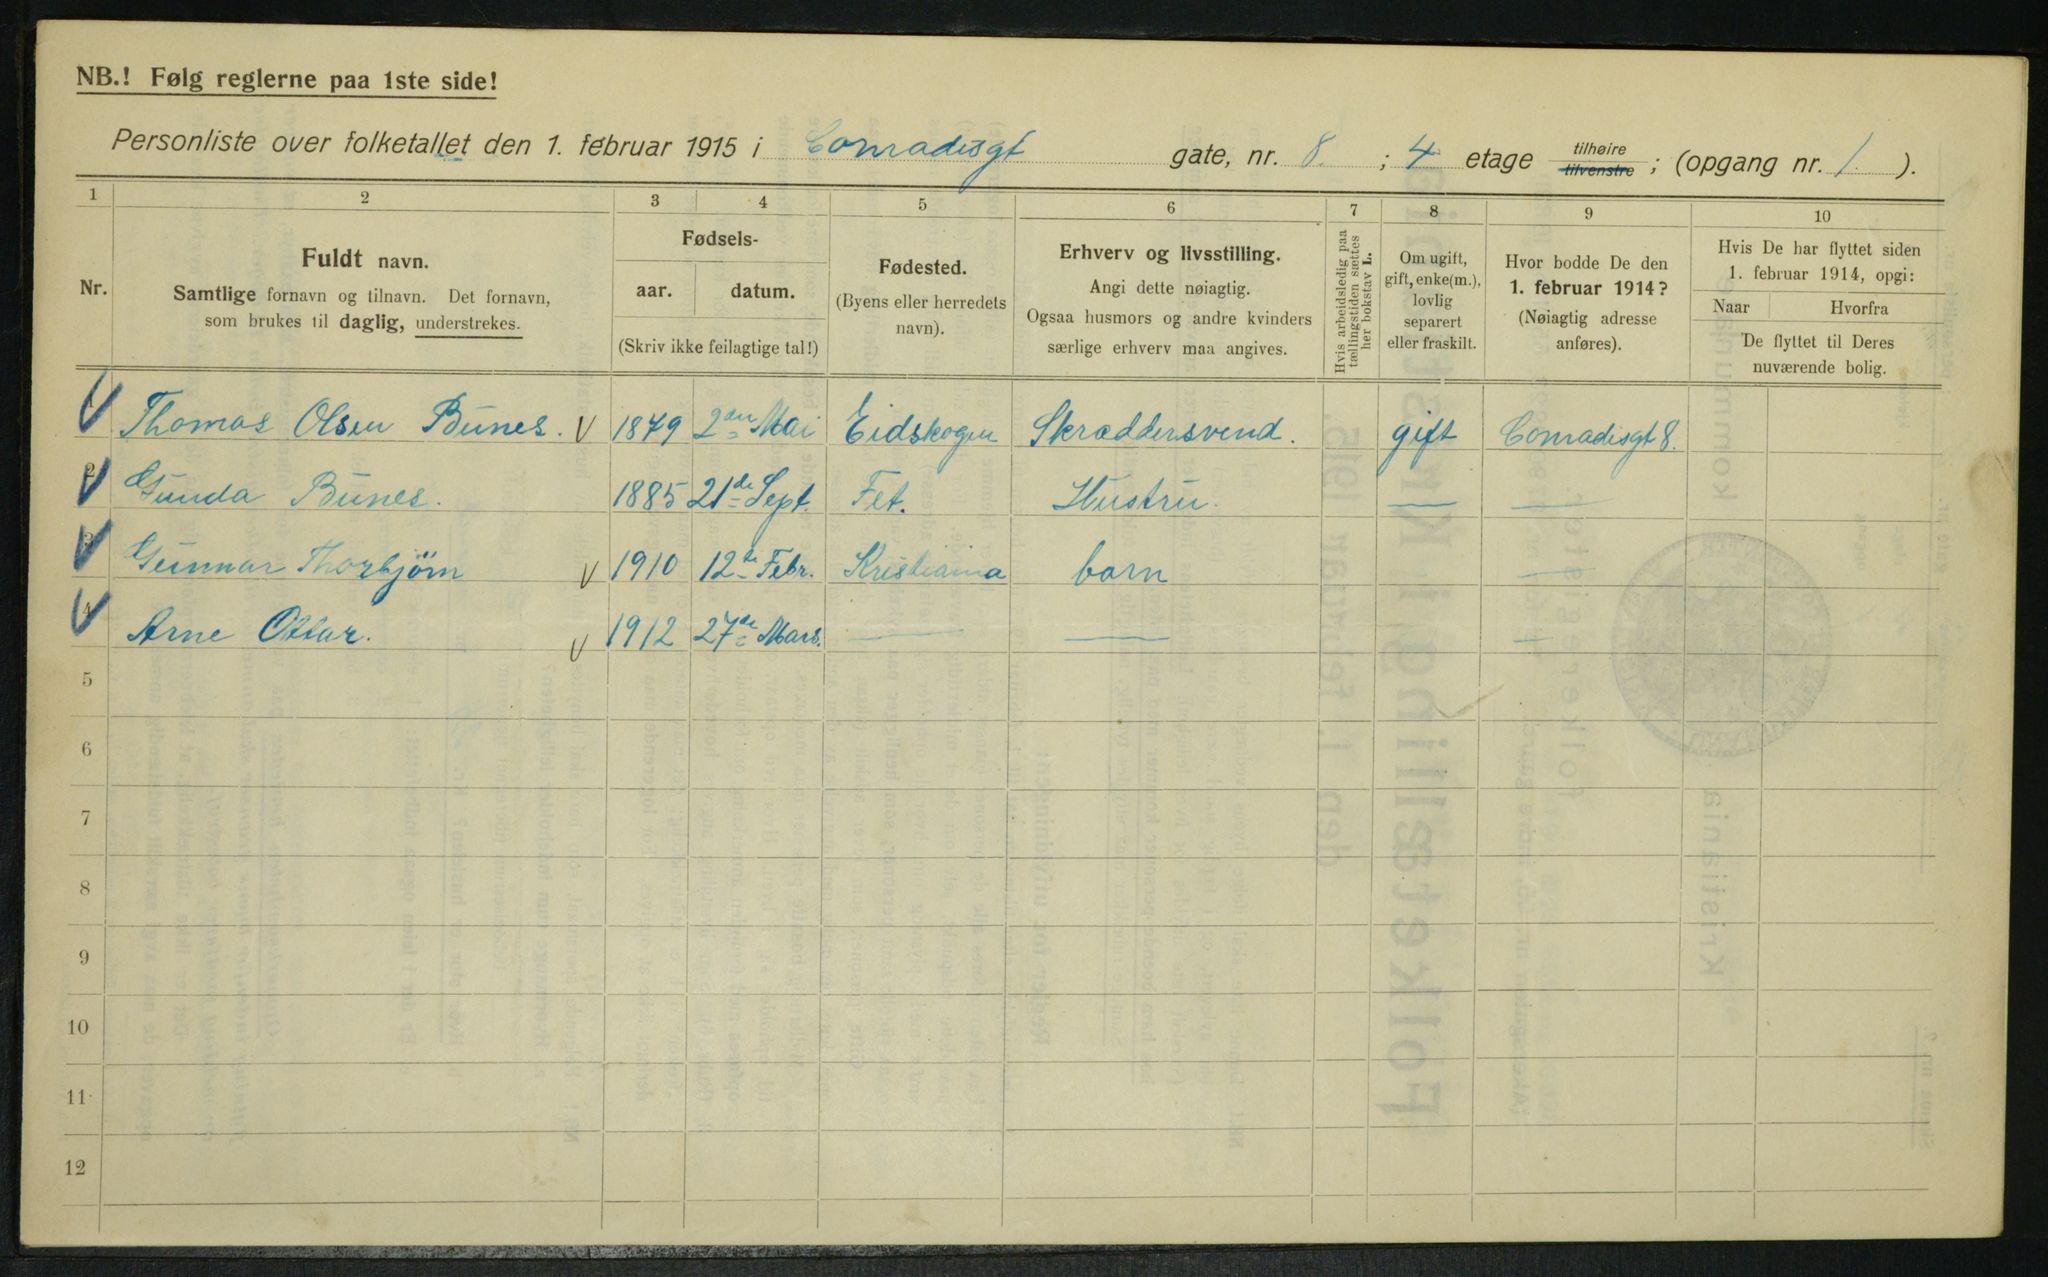 NB.! Følg reglerne paa 1ste side!
Personliste over folketallet den 1. februar 1915 i Conradisgt gate, nr. 8. ; 4 etage tilhøire tilvenstre ; (opgang nr. 1. ).
1 2 3 4 5 6 7 8 9 10
Nr.
Fuldt navn.
Samtlige fornavn og tilnavn. Det fornavn,
som brukes til daglig, understrekes.
Fødsels-
aar. datum.
(Skriv ikke feilagtige tal!)
Fødested.
(Byens eller herredets
navn).
Erhverv og livsstilling.
Angi dette nøiagtig.
Ogsaa husmors og andre kvinders
særlige erhverv maa angives.
Hvis arbeidsledig paa
tællingstiden sættes
her bokstav L.
Om ugift,
gift, enke(m.),
lovlig
separert
eller fraskilt.
Hvor bodde De den
1. februar 1914?
(Nøiagtig adresse
anføres).
Hvis De har flyttet siden
1. februar 1914, opgi:
Naar Hvorfra
De flyttet til Deres
nuværende bolig.
1 Thomas Olsen Bunes. V 1879 2den Mai Eidskogen Skræddersvend. gift Conradisgt 8.
2 Gunda Bunes. 1885 21de Sept. Fet. Hustru. — —
3 Gunnar Thorbjörn V 1910 12te Febr. Kristiania barn —
4 Arne Ottar. V 1912 27de Mars. — — —
5
6
7
8
9
10
11
12